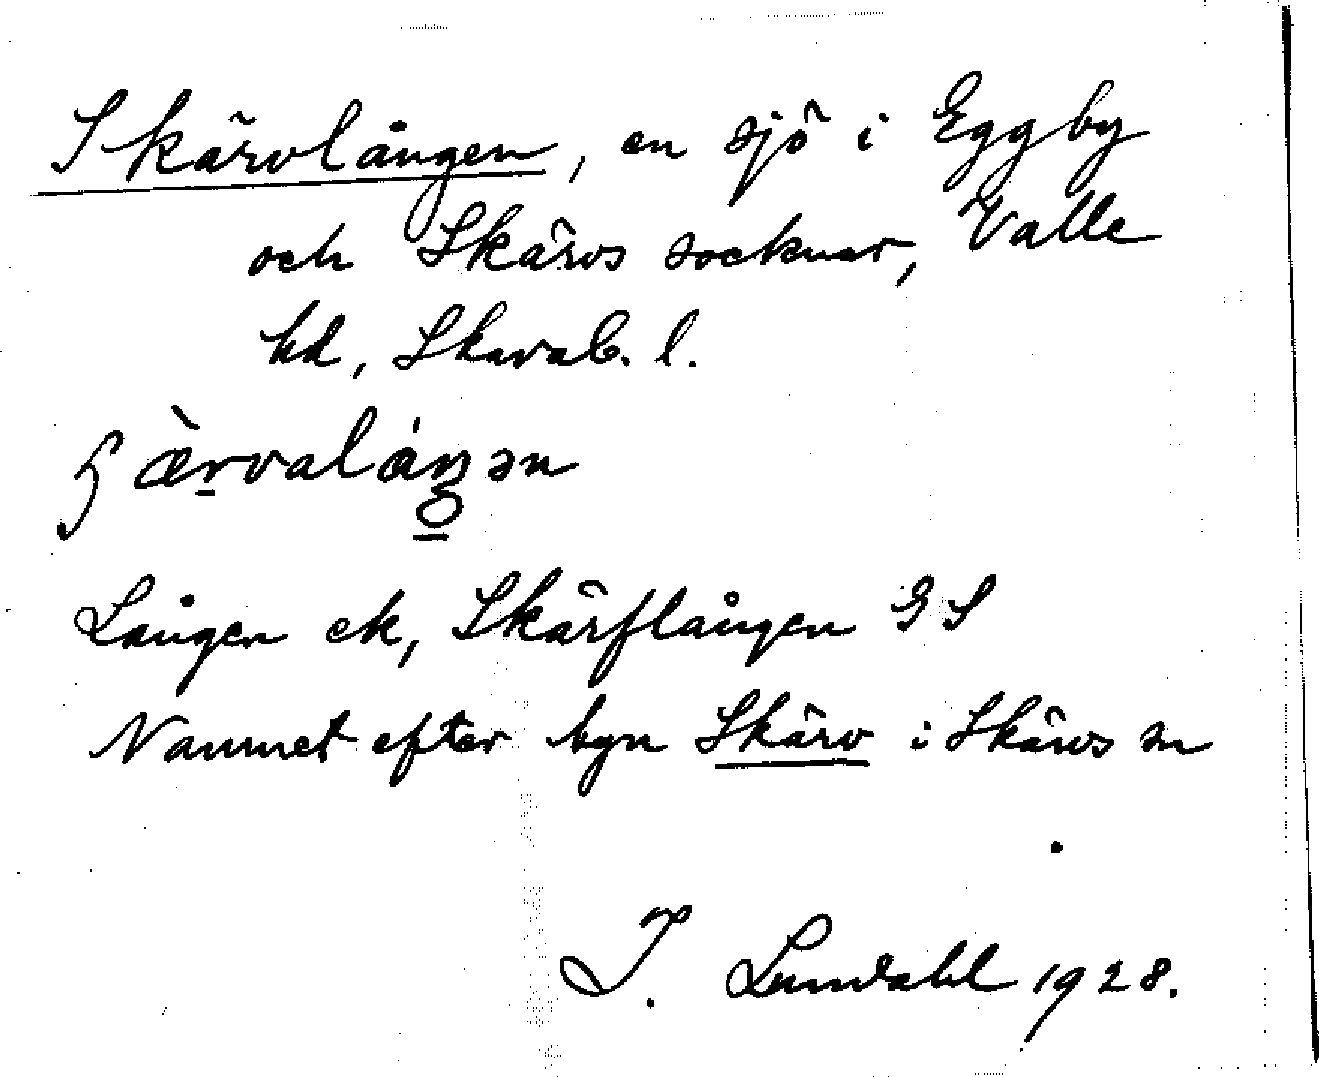 Skärvlången, en sjö i Eggby
och Skärvs socknar, Valle
hd, Skarab. l.
ʂæ̀rvaláŋən
Lången ek, Skärflången GS
Namnet efter byn Skärv i Skärvs sn
I. Lundahl 1928.